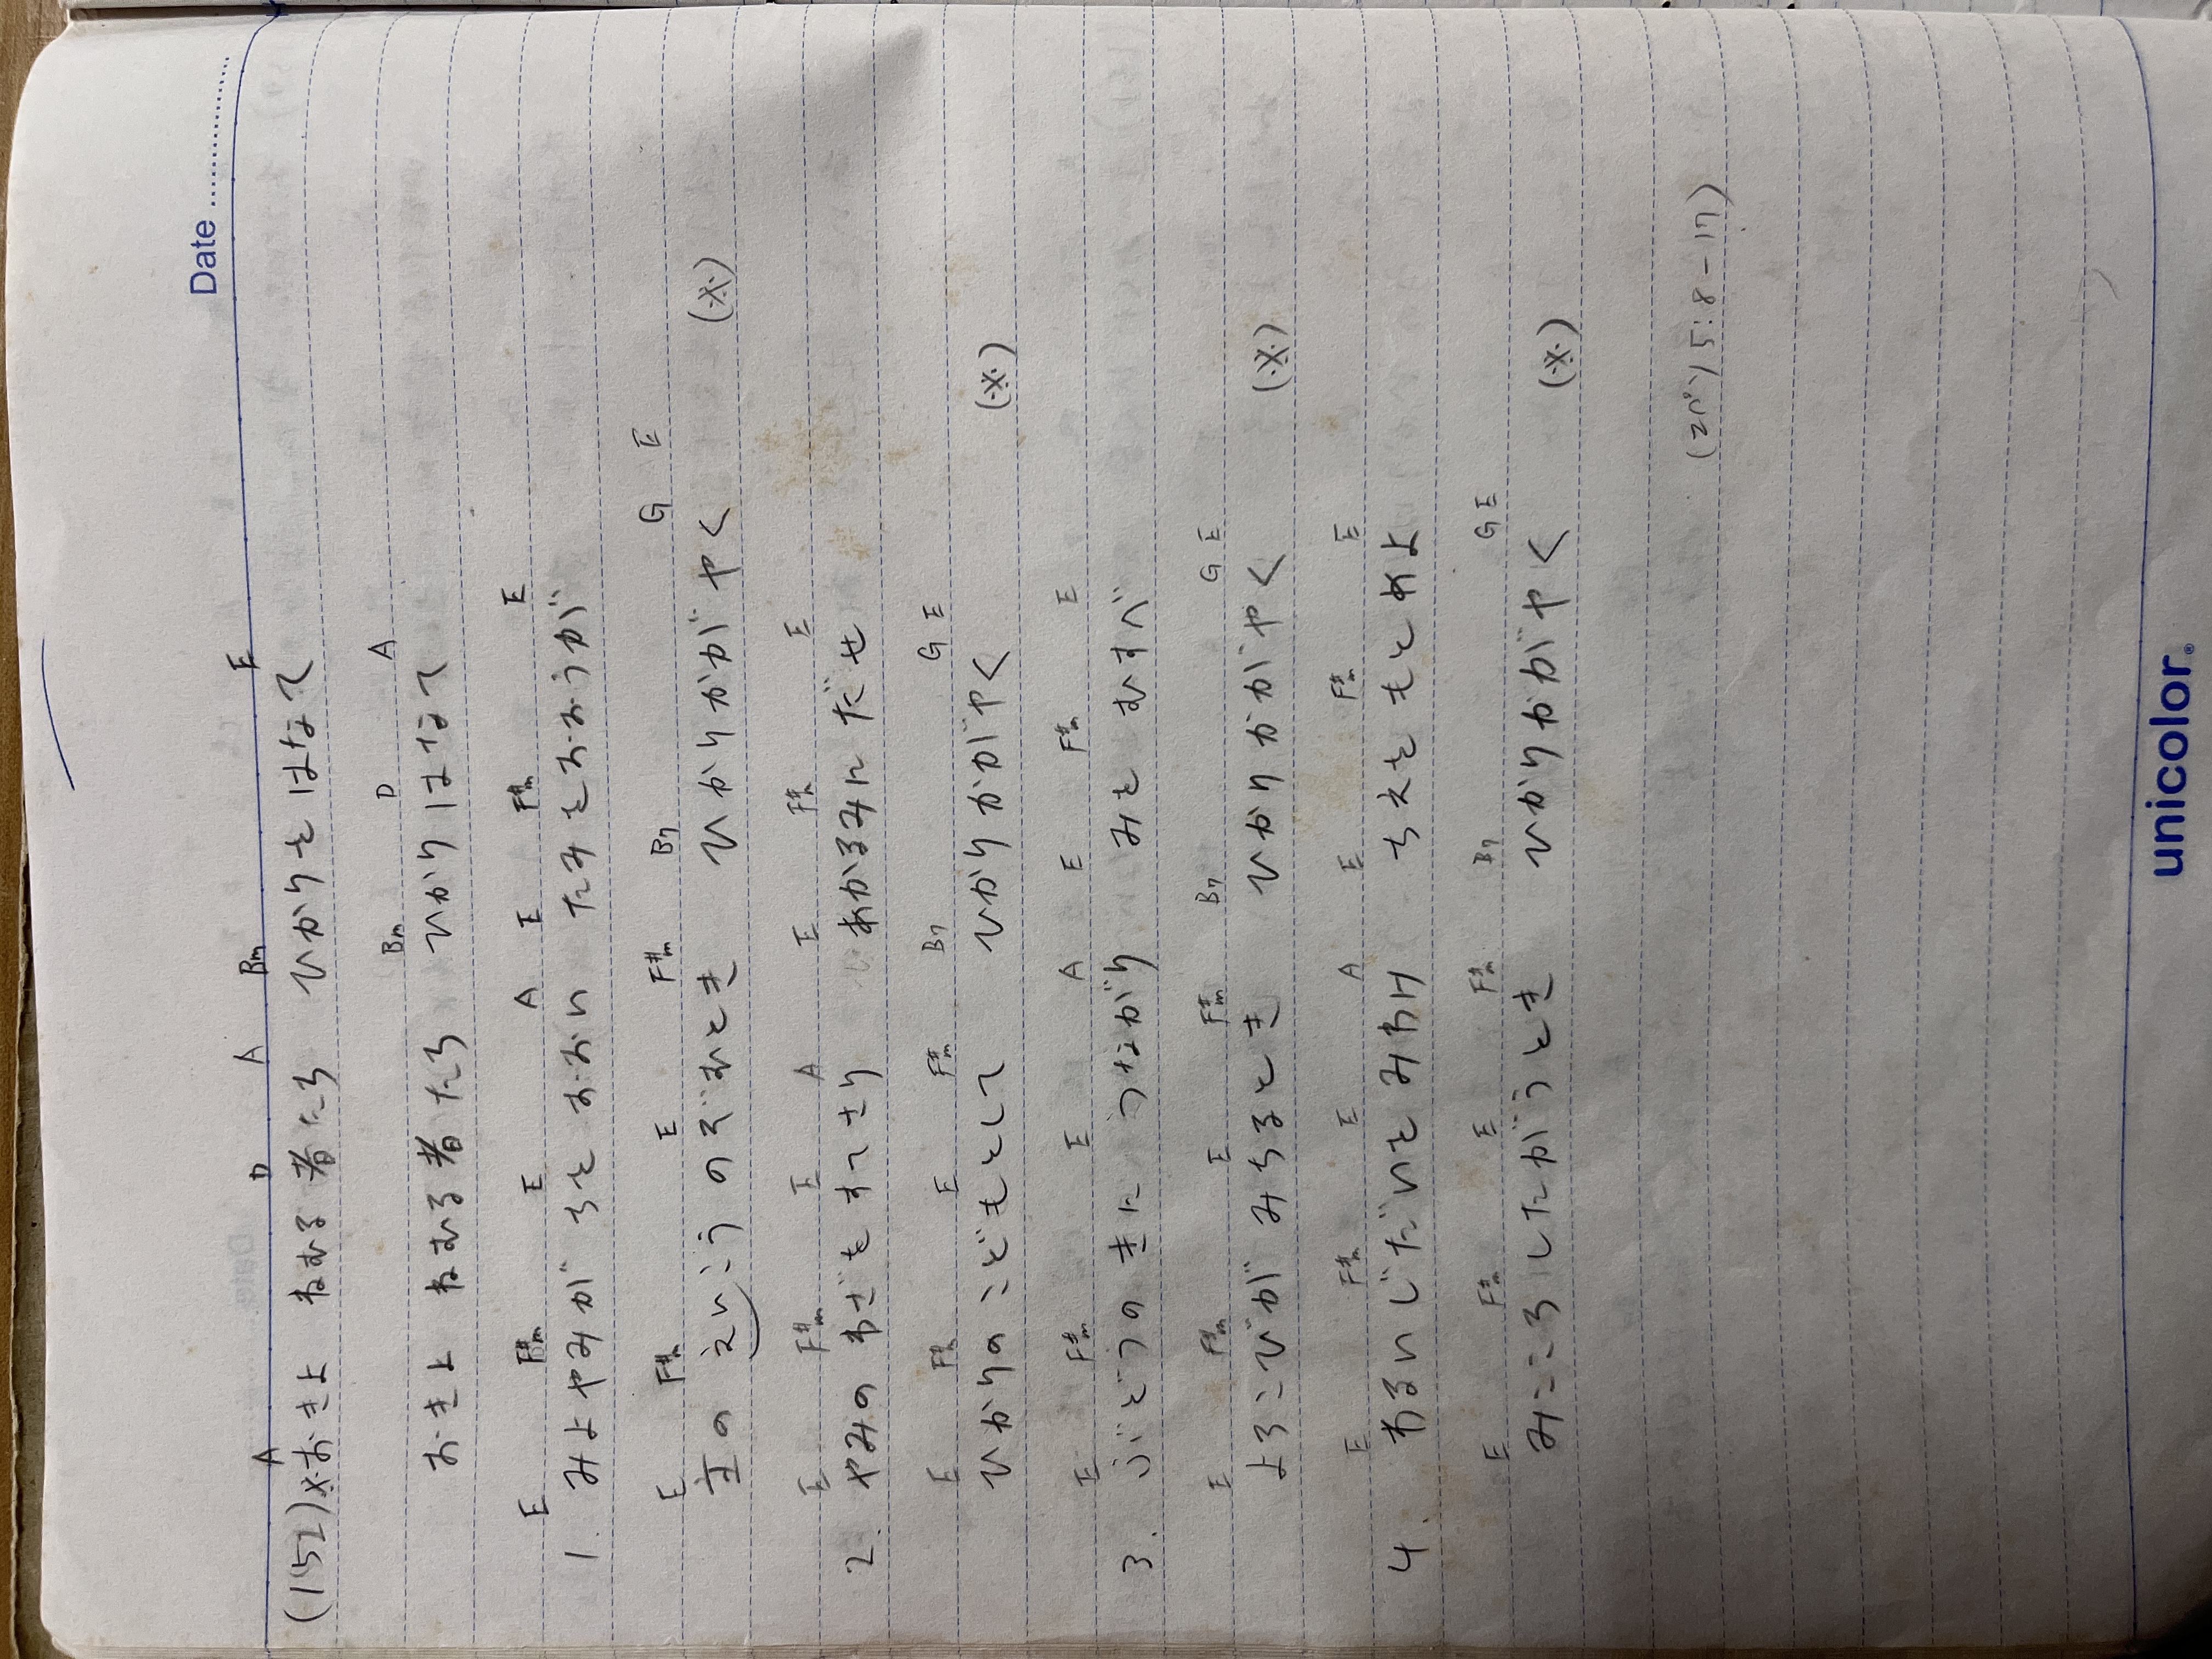 Date
A D A Bm E
(152)※おきよ ねむる者たち ひかりをはなて
Bm D A
おきよ ねむる者たち ひかりはなて
E F#m E A E F#m E
1. みよやみが ちをおおい たみをおおうが
E F#m E F#m B7 G E
主の えいこうのぞむとき ひかりかがやく (※)
E F#m E A E F#m E
2. やみの わざをすてさり あかるみにだせ
E F#m E F#m B7 G E
ひかりのこどもとして ひかりかがやく (※)
E F#m E A E F#m E
3. ぶどうのきに つながり みをむすべ
E F#m E F#m B7 G E
よろこびが みちるとき ひかりかがやく (※)
E F#m E A E F#m E
4. わるいじだいをみわけ ちえをもとめよ
E F#m E F#m B7 G E
みこころしたがうとき ひかりかがやく (※)
(エペソ5:8-17)
unicolor.